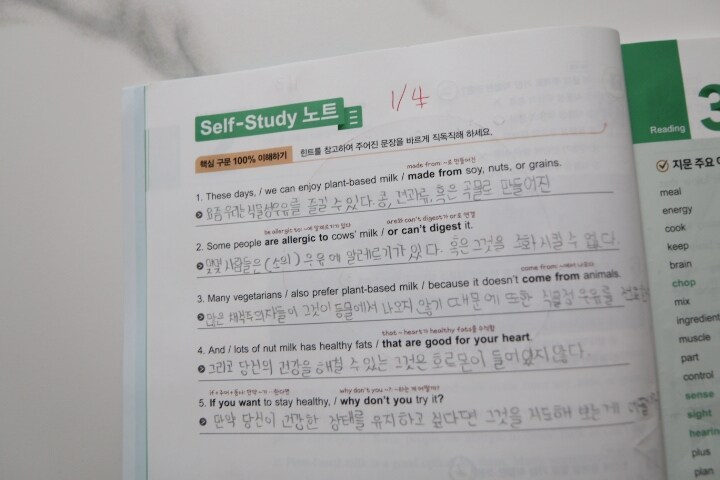 1/4
Self-Study 노트
핵심 구문 100% 이해하기 힌트를 참고하여 주어진 문장을 바르게 직독직해 하세요.
made from ~로 만들어진
1. These days, / we can enjoy plant-based milk / made from soy, nuts, or grains.
요즘 우리는 식물성우유를 즐길 수 있다. 콩, 견과류, 혹은 곡물로 만들어진
be allergic to: ~에 알레르기가 있다 are와 can't digest가 or로 연결
2. Some people are allergic to cows' milk / or can't digest it.
몇몇 사람들은 (소의) 우유에 알레르기가 있다. 혹은 그것을 소화 시킬 수 없다.
come from: ~에서 나오다
3. Many vegetarians / also prefer plant-based milk / because it doesn't come from animals.
많은 채식주의자들이 그것이 동물에서 나오지 않기 때문에 또한 식물성 우유를
that ~ heart가 healthy fats를 수식함
4. And / lots of nut milk has healthy fats / that are good for your heart.
그리고 당신의 건강을 해칠 수 있는 그것은 호르몬이 들어있지 않다.
why don't you ~?: ~하는 게 어떨까?
5. If you want to stay healthy, / why don't you try it?
만약 당신이 건강한 상태를 유지하고 싶다면 그것을 시도해 보는게
Reading
3
지문 주요
meal
energy
cook
keep
brain
chop
mix
ingredient
muscle
part
control
sense
sight
hearing
plus
plan